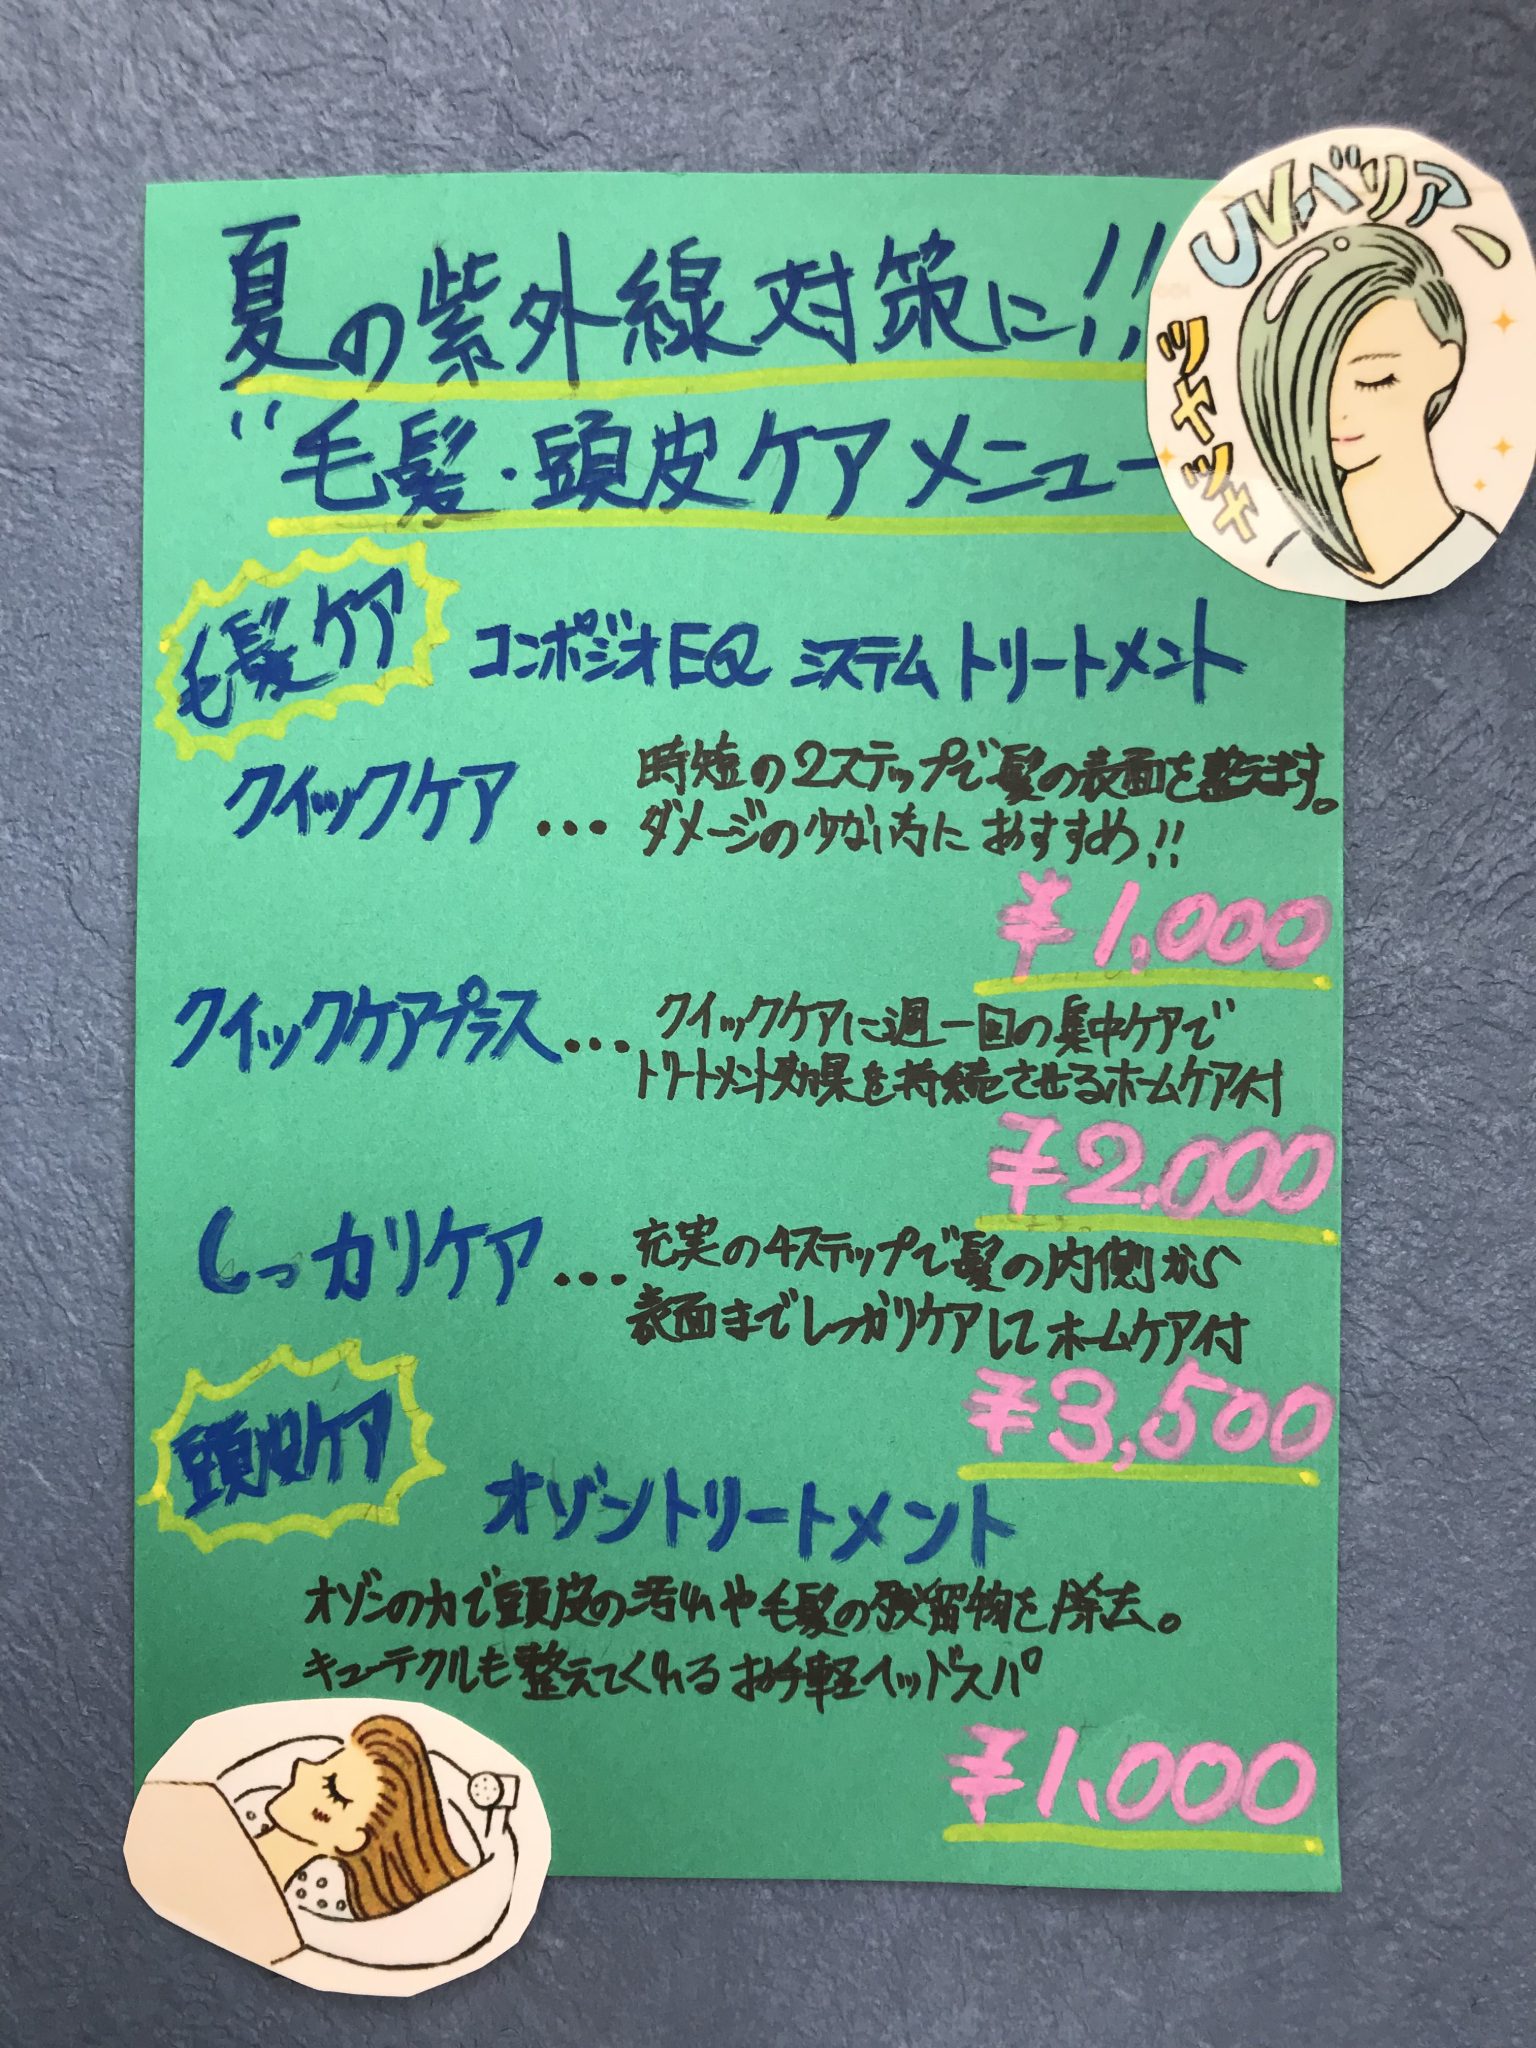 UVバリアー
ツヤツヤ
夏の紫外線対策に!!
"毛髪・頭皮ケアメニュー
毛髪ケア
コンポジオEQ システムトリートメント
クイックケア…
時短の2ステップで髪の表面を整えます。
ダメージの少ない方におすすめ!!
¥1,000
クイックケアプラス…
クイックケアに週一回の集中ケアで
トリートメント効果を持続させるホームケア付
¥2,000
しっカリケア…
充実の4ステップで髪の内側から
表面までしっカリケアしてホームケア付
¥3,500
頭皮ケア
オゾントリートメント
オゾンの力で頭皮の汚れや毛髪の残留物を除去。
キューテクルも整えてくれるお手軽ヘッドスパ
¥1,000